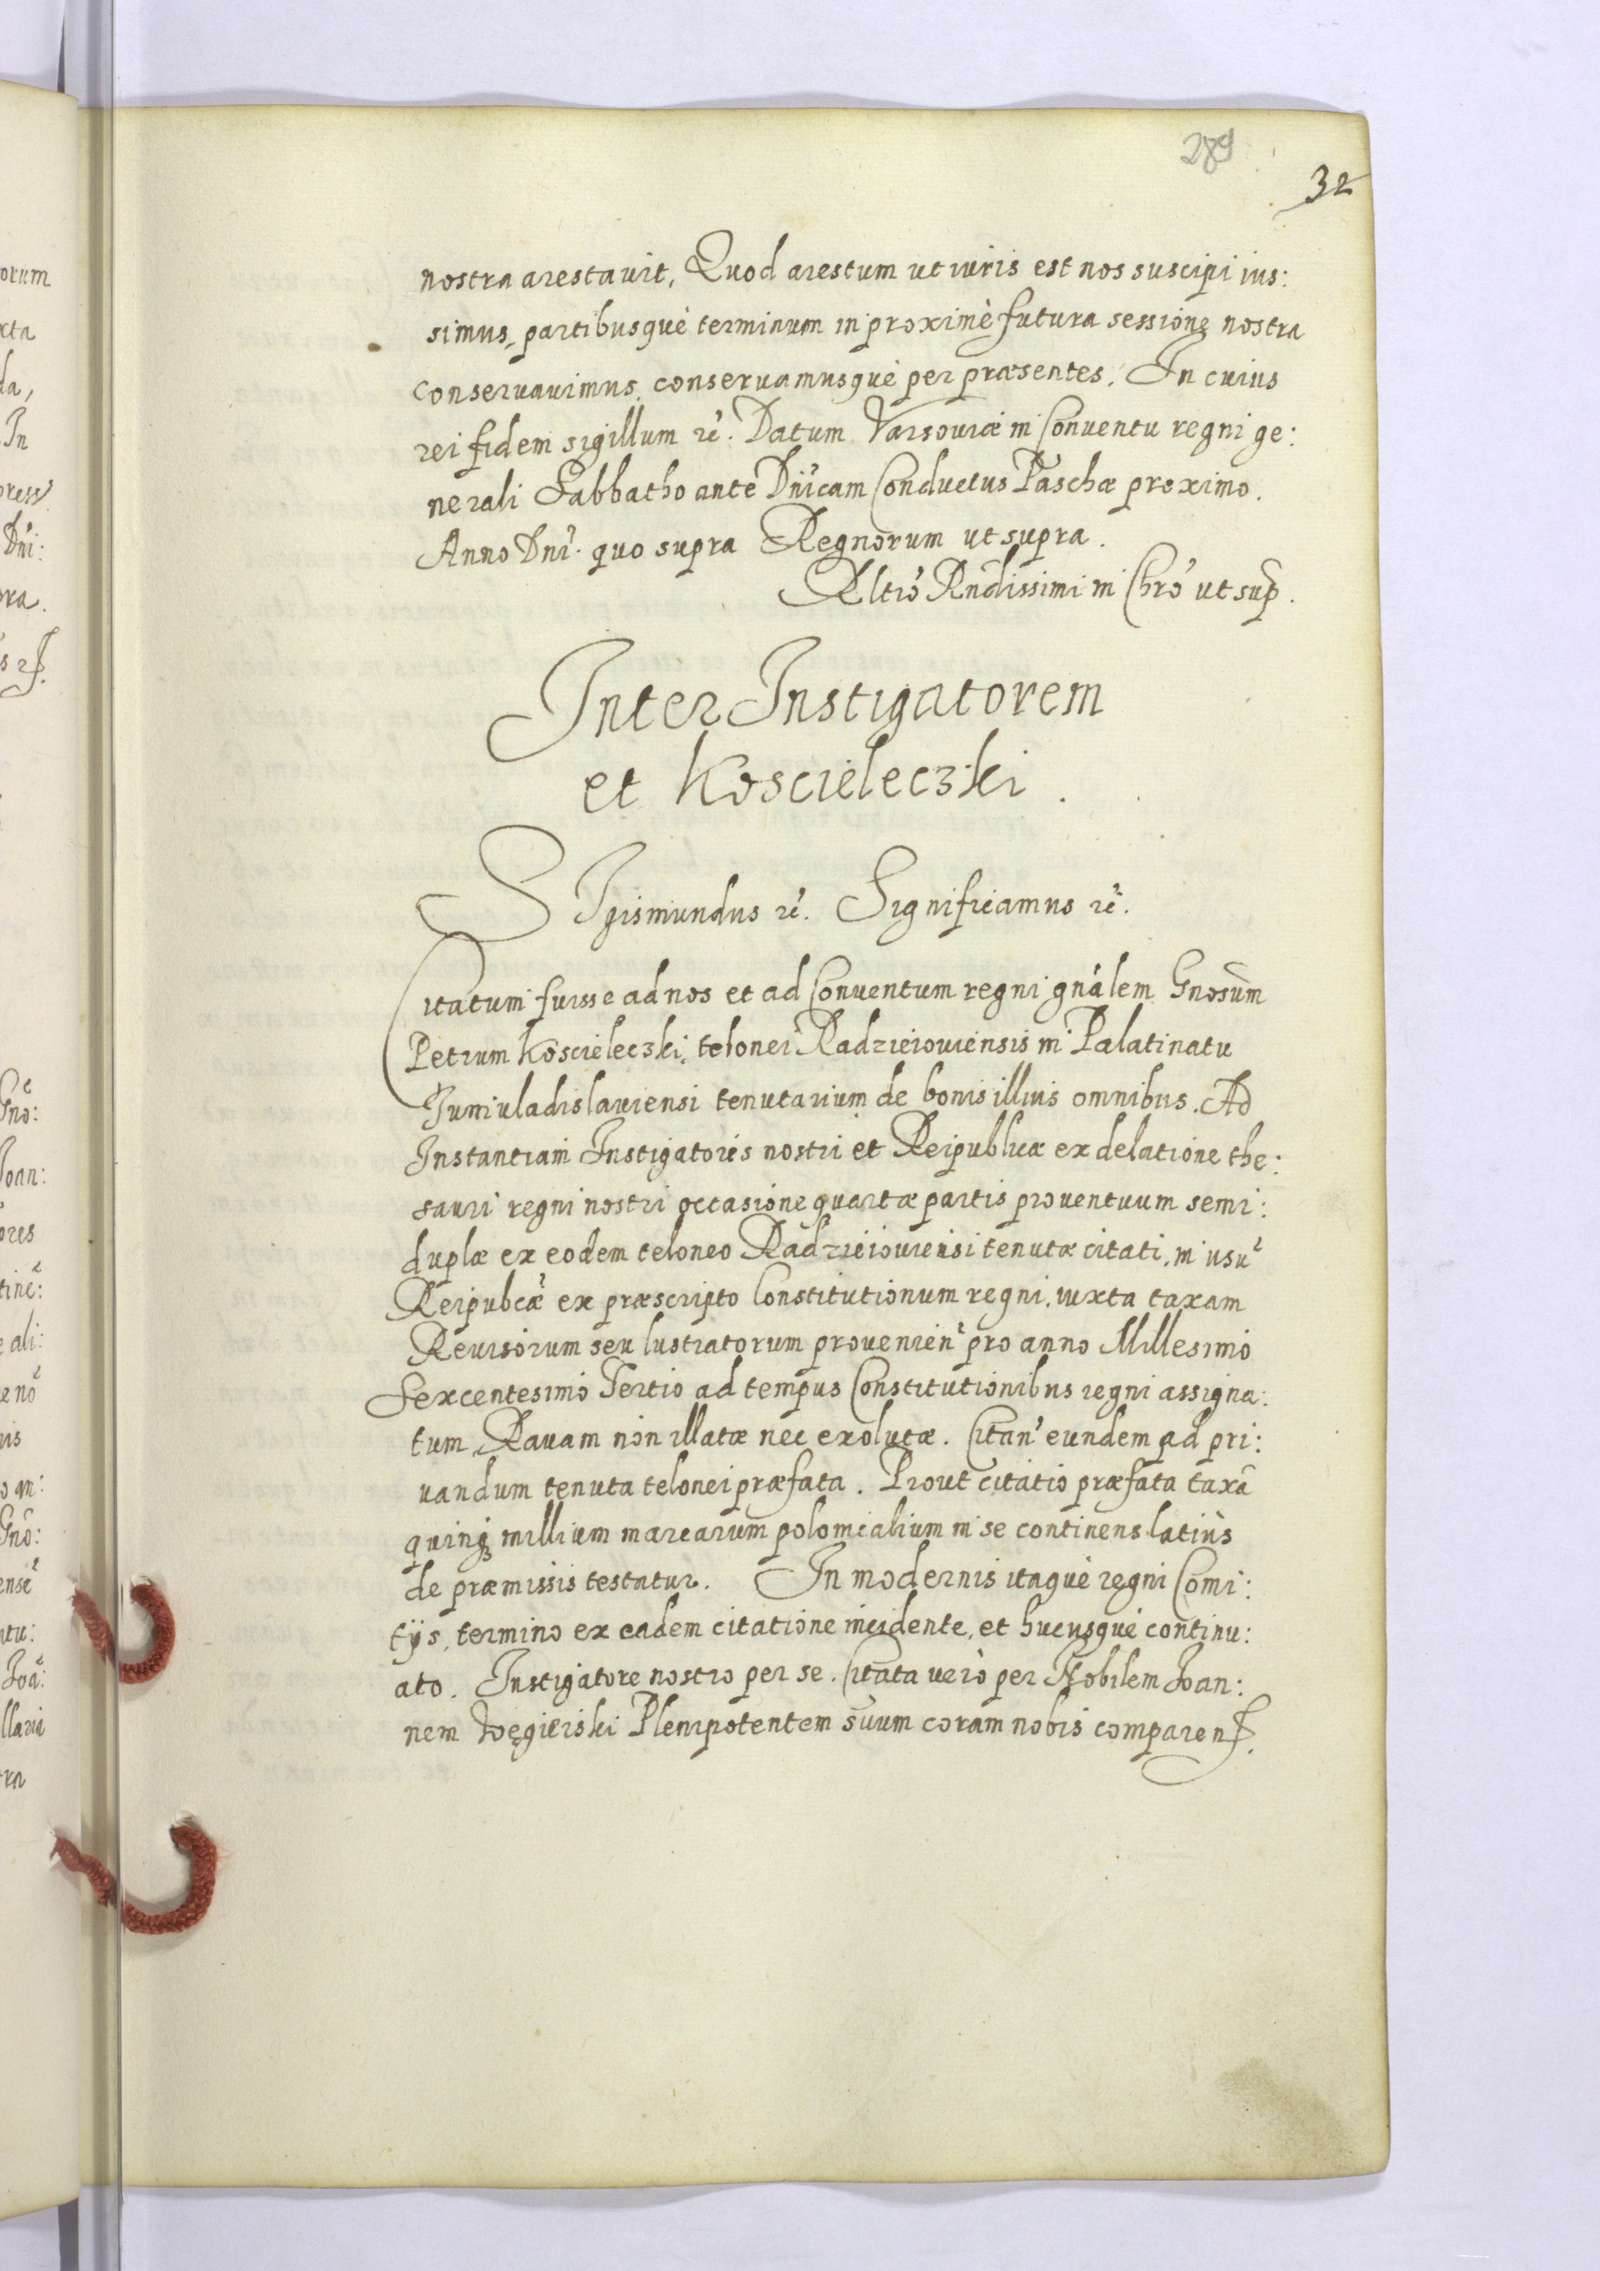 289
32
nostra arestavit, Quod arestum ut iuris est nos suscipi ius:
simus, partibusquè terminum in proximè futura sessione nostra
conservavimus, conservamusquè per præsentes. In cuius
rei fidem sigillum rc̃. Datum Varsoviæ in Conventu regni ge:
nerali Sabbatho ante Dnĩcam Conductus Paschæ proximo.
Anno Dnĩ. quo supra Regnorum ut supra.
Rltiõ Rndissimi in Chrõ ut sup̃.
Inter Instigatorem
et Koscieleczki.
SIgismundus rc̃. Significamus rc̃.
Citatum fuisse ad nos et ad Conventum regni gnãlem Gnosum̃
Petrum Koscieleczki, telonei Radzieioviensis in Palatinatu
Iuniuladislaviensi tenutarium de bonis illius omnibus. Ad
Instantiam Instigatoris nostri et Reipublicæ ex delatione the:
sauri regni nostri occasione quartæ partis proventuum semi:
duplæ ex eodem teloneo Radzieioviensi tenutæ citati, in usũ
Reipubcæ̃ ex præscripto Constitutionum regni, iuxta taxam
Revisorum seu lustratorum provenieñ pro anno Millesimo
Sexcentesimo Tertio ad tempus Constitutionibus regni assigna:
tum Ravam non illatæ nec exolutæ. Citañ eundem ad pri:
vandum tenuta telonei præfata. Prout citatio præfata taxã
quinq3 millium marcarum polonicalium in se continens latius
de præmissis testatur. In modernis itaquè regni Comi:
tijs, termino ex eadem citatione incidente, et hucusquè continu:
ato. Instigatore nostro per se. Citata verò per Nobilem Ioan:
nem Węgierski Plenipotentem suum coram nobis compareñ.